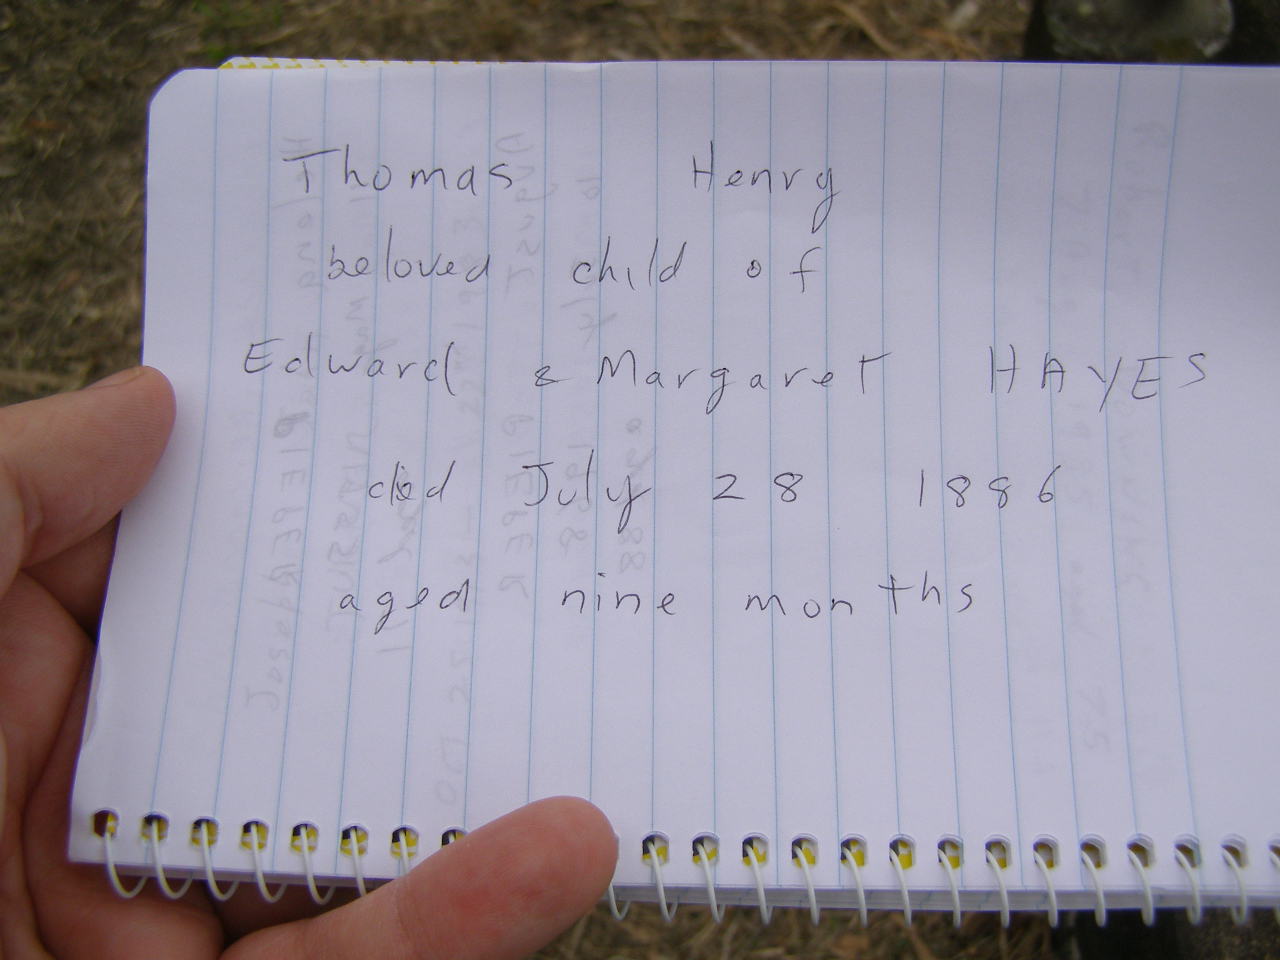 Thomas Henry
beloved child of
Edward & Margaret HAYES
died July 28 1886
aged nine months